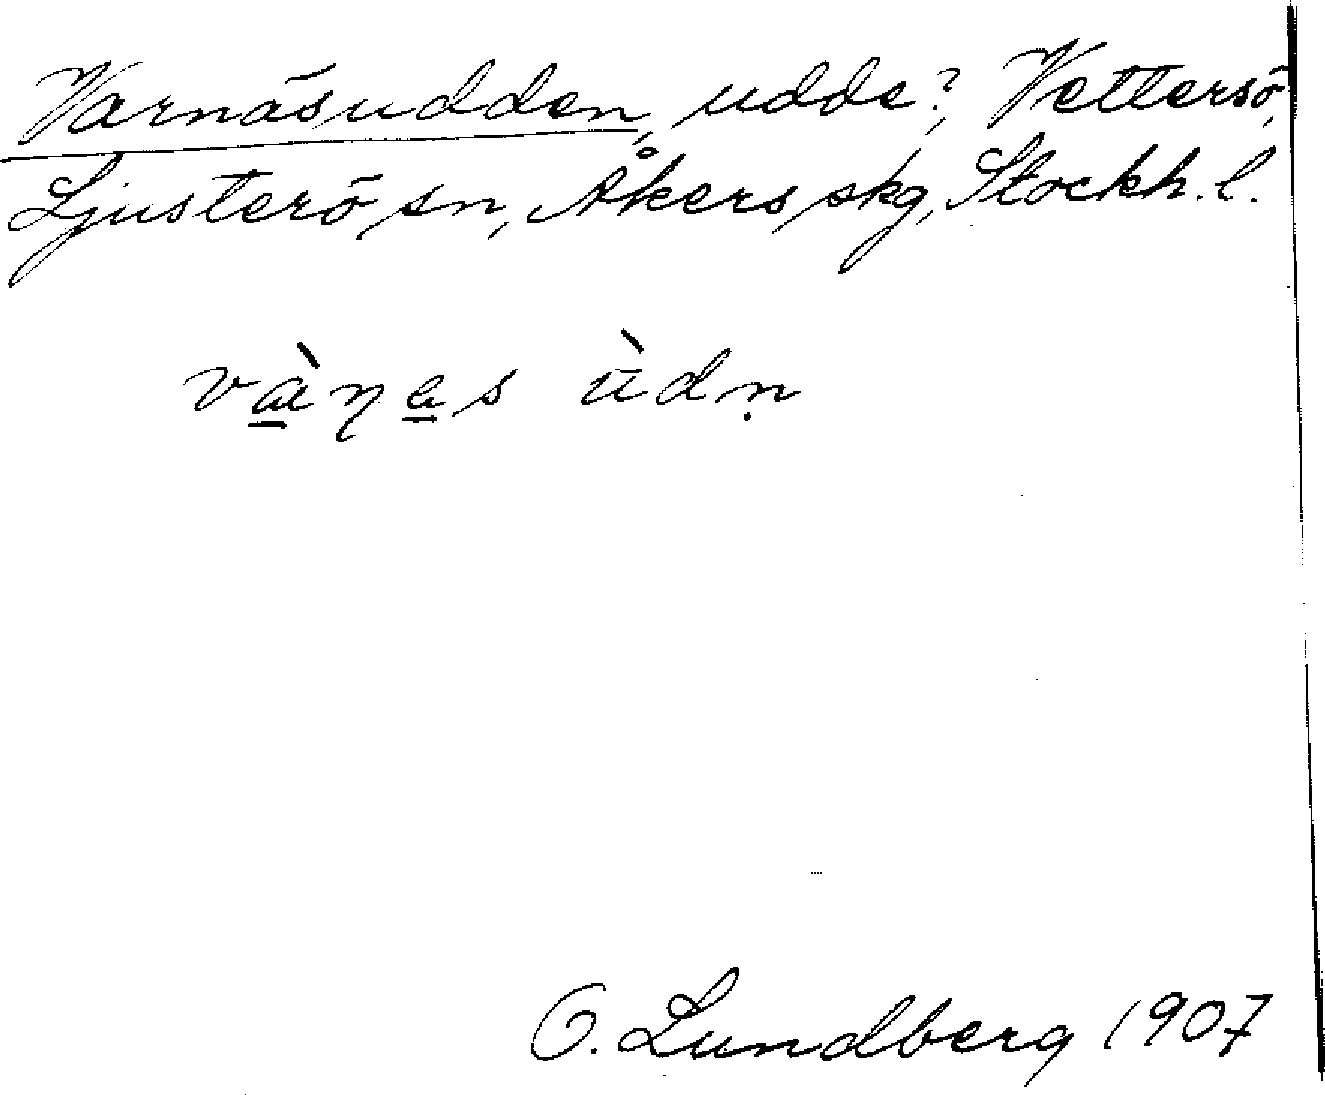 Varnäsudden, udde?, Vettersö,
Ljusterö sn, Åkers skg, Stockh. l.
vàɳes ùdṇ
O. Lundberg 1907